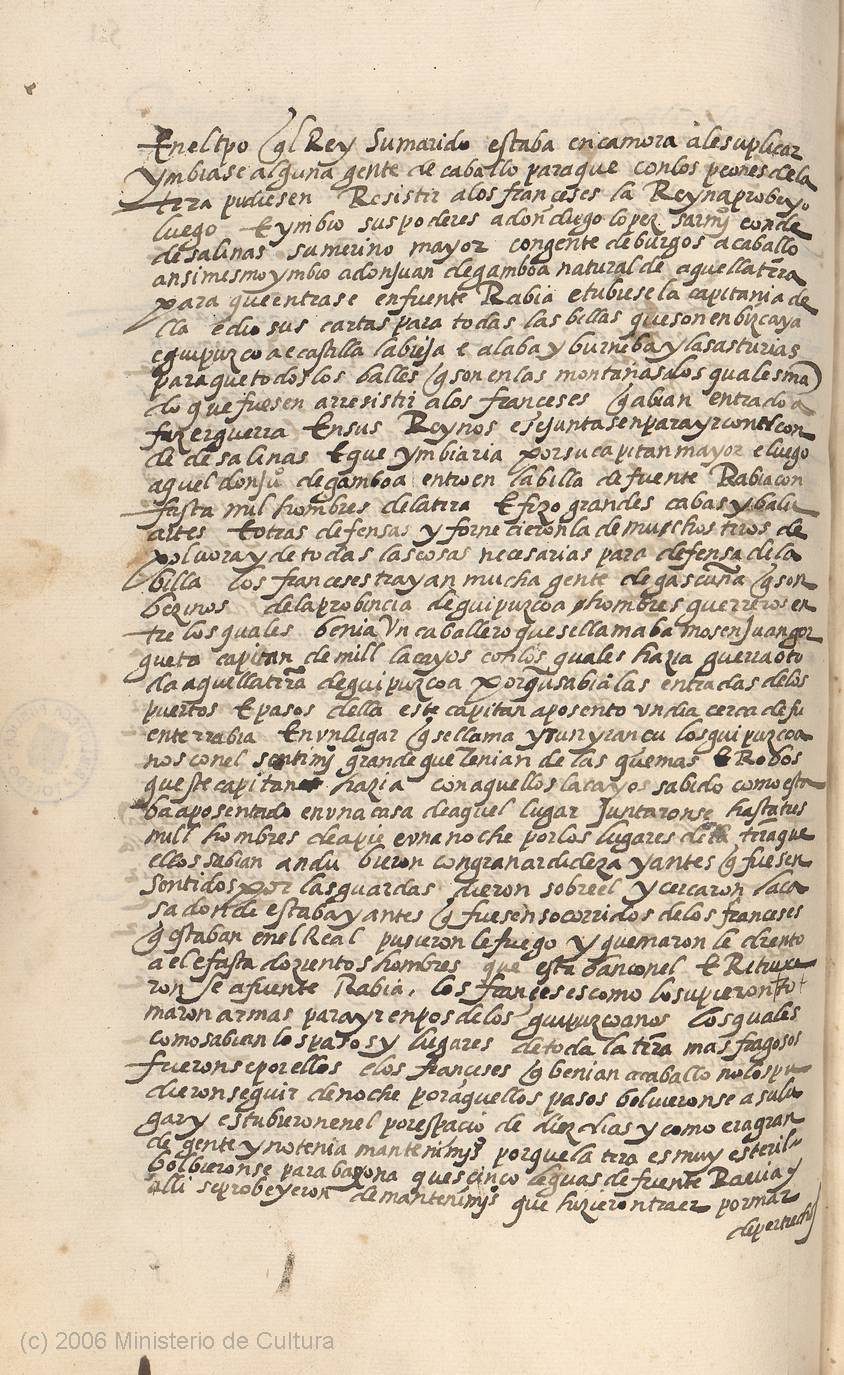 En el tpo q̃l Rey Su marido estaba en camora a le suplicar
ymbiase alguna gente de caballo para que con los peones de la
tr̃ra pudiesen Resistir a los françeses la Reyna probeyo
luego E ymbio sus poderes a don diego lopez sarmj̃ conde
de salinas su merino mayor con gente de burgos a caballo
ansi mesmo ymbio a don juan de gamboa natural de aquella tr̃ra
para que entrase en fuente Rabia e tubiese la capitania de
lla e dio sus cartas para todas las billas que son en bizcaya
e guipuzcoa e castilla la bieja e alaba y burueba y las asturias
para que todos los balles q̃ son en las montañas a los quales ma
do que fuesen a rresistir a los franceses q̃ abian entrado a
fazer guerra En sus Reynos e se juntasen para yr con el con
de de salinas E que ymbiaria por su capitan mayor e luego
aquel don juº de gamboa entro en la billa de fuente Rabia con
fasta mil hombres de la tr̃ra E fizo grandes cabas y balu
artes E otras defensas y fornecieron la de muchos tiros de
polvora y de todas las cosas necesarias para defensa de la
billa los franceses trayan mucha gente de gascuña q̃ son
bezinos de la probincia de guipuzcoa hombres guerreros en
tre los quales benia Vn caballero que se llamaba mosen Juan gor
gueta capitan de mill lacayos con los quales hazia guerra a to
da aquella tr̃ra de guipuzcoa porq̃ sabia las entradas de los
puertos E pasos della este capitan aposento vn dia cerca de fu
ente rrabia En vn lugar q̃ se llama yrun yrancu los guipuzcoa
nos con el sentimj̃ grande que tenian de las quemas E Robos
que ste capitan hazia con aquellos lacayos sabido como esta
ba aposentado en vna casa de aquel lugar Juntaronse hasta tres
mill hombres de a pie e vna noche por los lugares de la tr̃ra que
ellos sabian andu bieron con gran ardideza y antes q̃ fuesen
sentidos por las guardas dieron sobre el y cercaron la ca
sa donde estaba y antes q̃ fuesen socorridos de los franceses
q̃ estaban en el Real pusieron le fuego y quemaron le dr̃ento
a el e fasta dozientos hombres que estaban con el E Retruxe
ron se a fuente Rabia, los françeses como lo supieron to
maron armas para yr en pos de los guipuzcoanos los quales
como sabian los pasos y lugares de toda la tr̃ra mas fragosos
fueronse por ellos e los françeses q̃ benian a caballo no los pu
dieron seguir de noche por aquellos pasos bolvieronse a su lu
gar y estubieron en el por espacio de diez dias y como era gran
de gente y no tenia mantenimj̃s porque la tr̃ra es muy esteril
bolbieronse para bayona que es cinco leguas de fuente Rauia y
alli se probeyeron de mantenimj̃s que hizieron traer por mar
de pertrechos